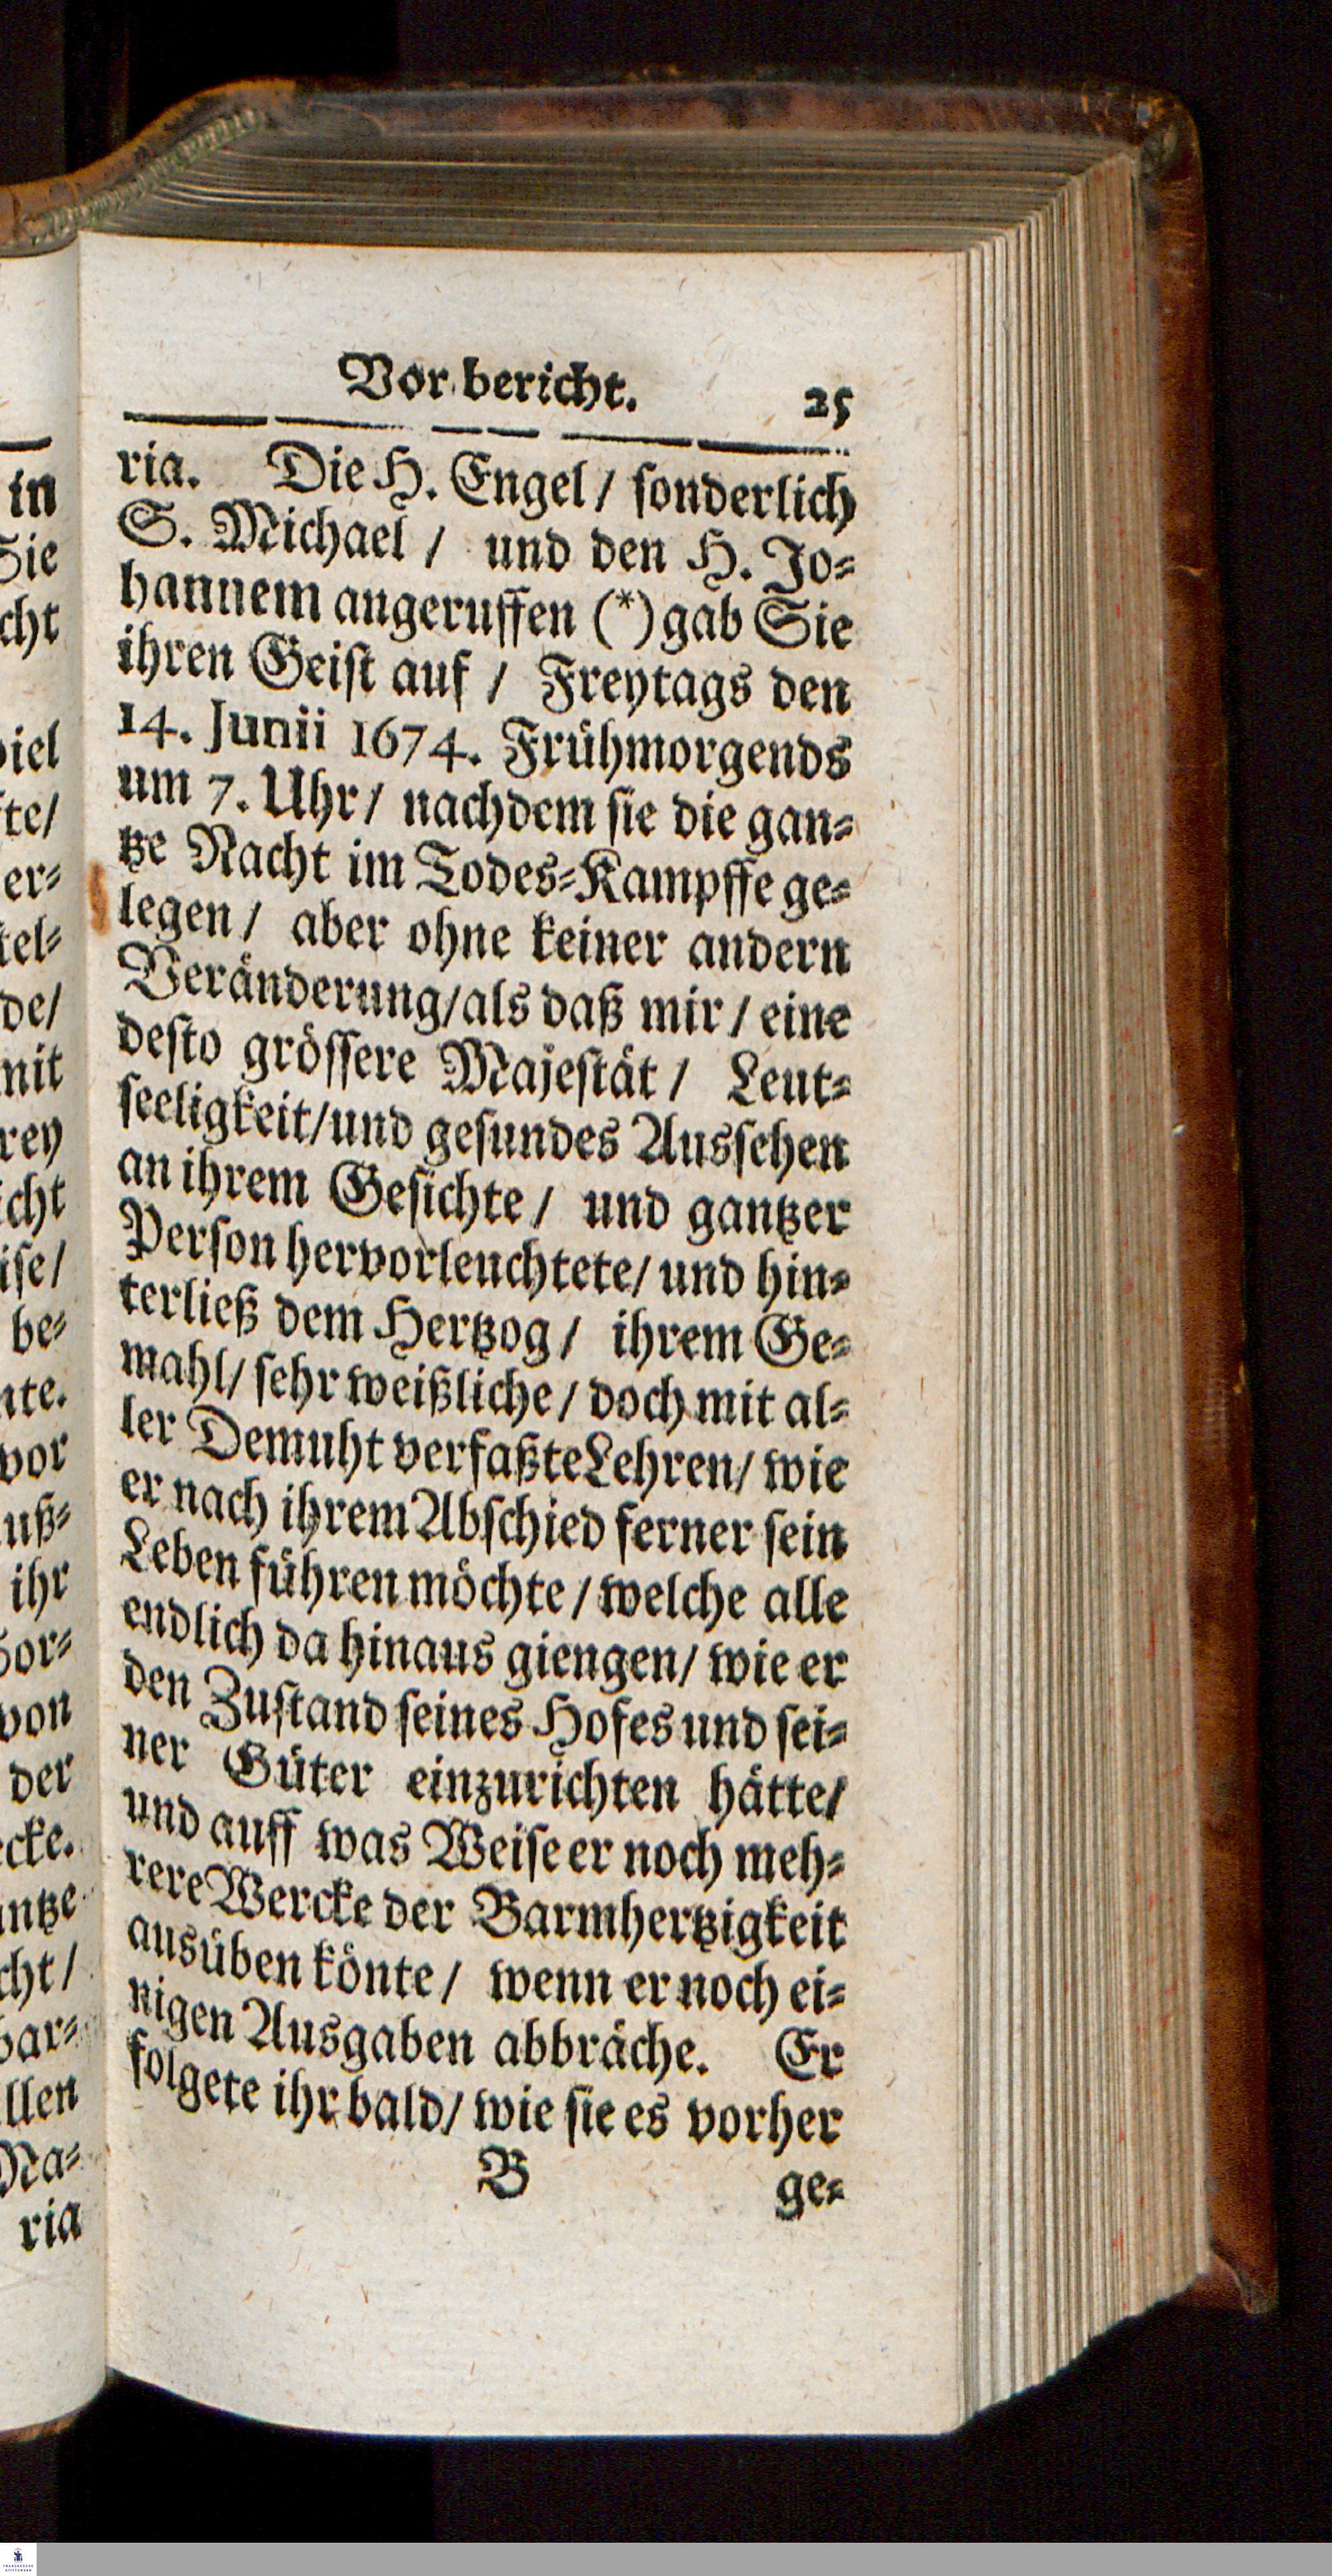 Vorbericht. 25
ria. Die H. Engel / sonderlich
S. Michael / und den H. Jo=
hannem angeruffen (*) gab Sie
ihren Geist auf / Freytags den
14. Junii 1674. Frühmorgends
um 7. Uhr / nachdem sie die gan=
tze Nacht im Todes=Kampffe ge=
legen / aber ohne keiner andern
Veränderung / als daß mir / eine
desto grössere Majestät / Leut=
seeligkeit / und gesundes Aussehen
an ihrem Gesichte / und gantzer
Person hervorleuchtete / und hin=
terließ dem Hertzog / ihrem Ge=
mahl / sehr weißliche / doch mit al=
ler Demuht verfaßte Lehren / wie
er nach ihrem Abschied ferner sein
Leben führen möchte / welche alle
endlich da hinaus giengen / wie er
den Zustand seines Hofes und sei=
ner Güter einzurichten hätte /
und auff was Weise er noch meh=
rere Wercke der Barmhertzigkeit
ausüben könte / wenn er noch ei=
nigen Ausgaben abbräche. Er
folgete ihr bald / wie sie es vorher
B ge=
in
Sie
cht
viel
te /
er=
tel=
de /
mit
rey
icht
ise /
be=
nte.
vor
uß=
ihr
Sor=
von
der
cke.
antze
cht /
bar=
llen
Ma=
ria